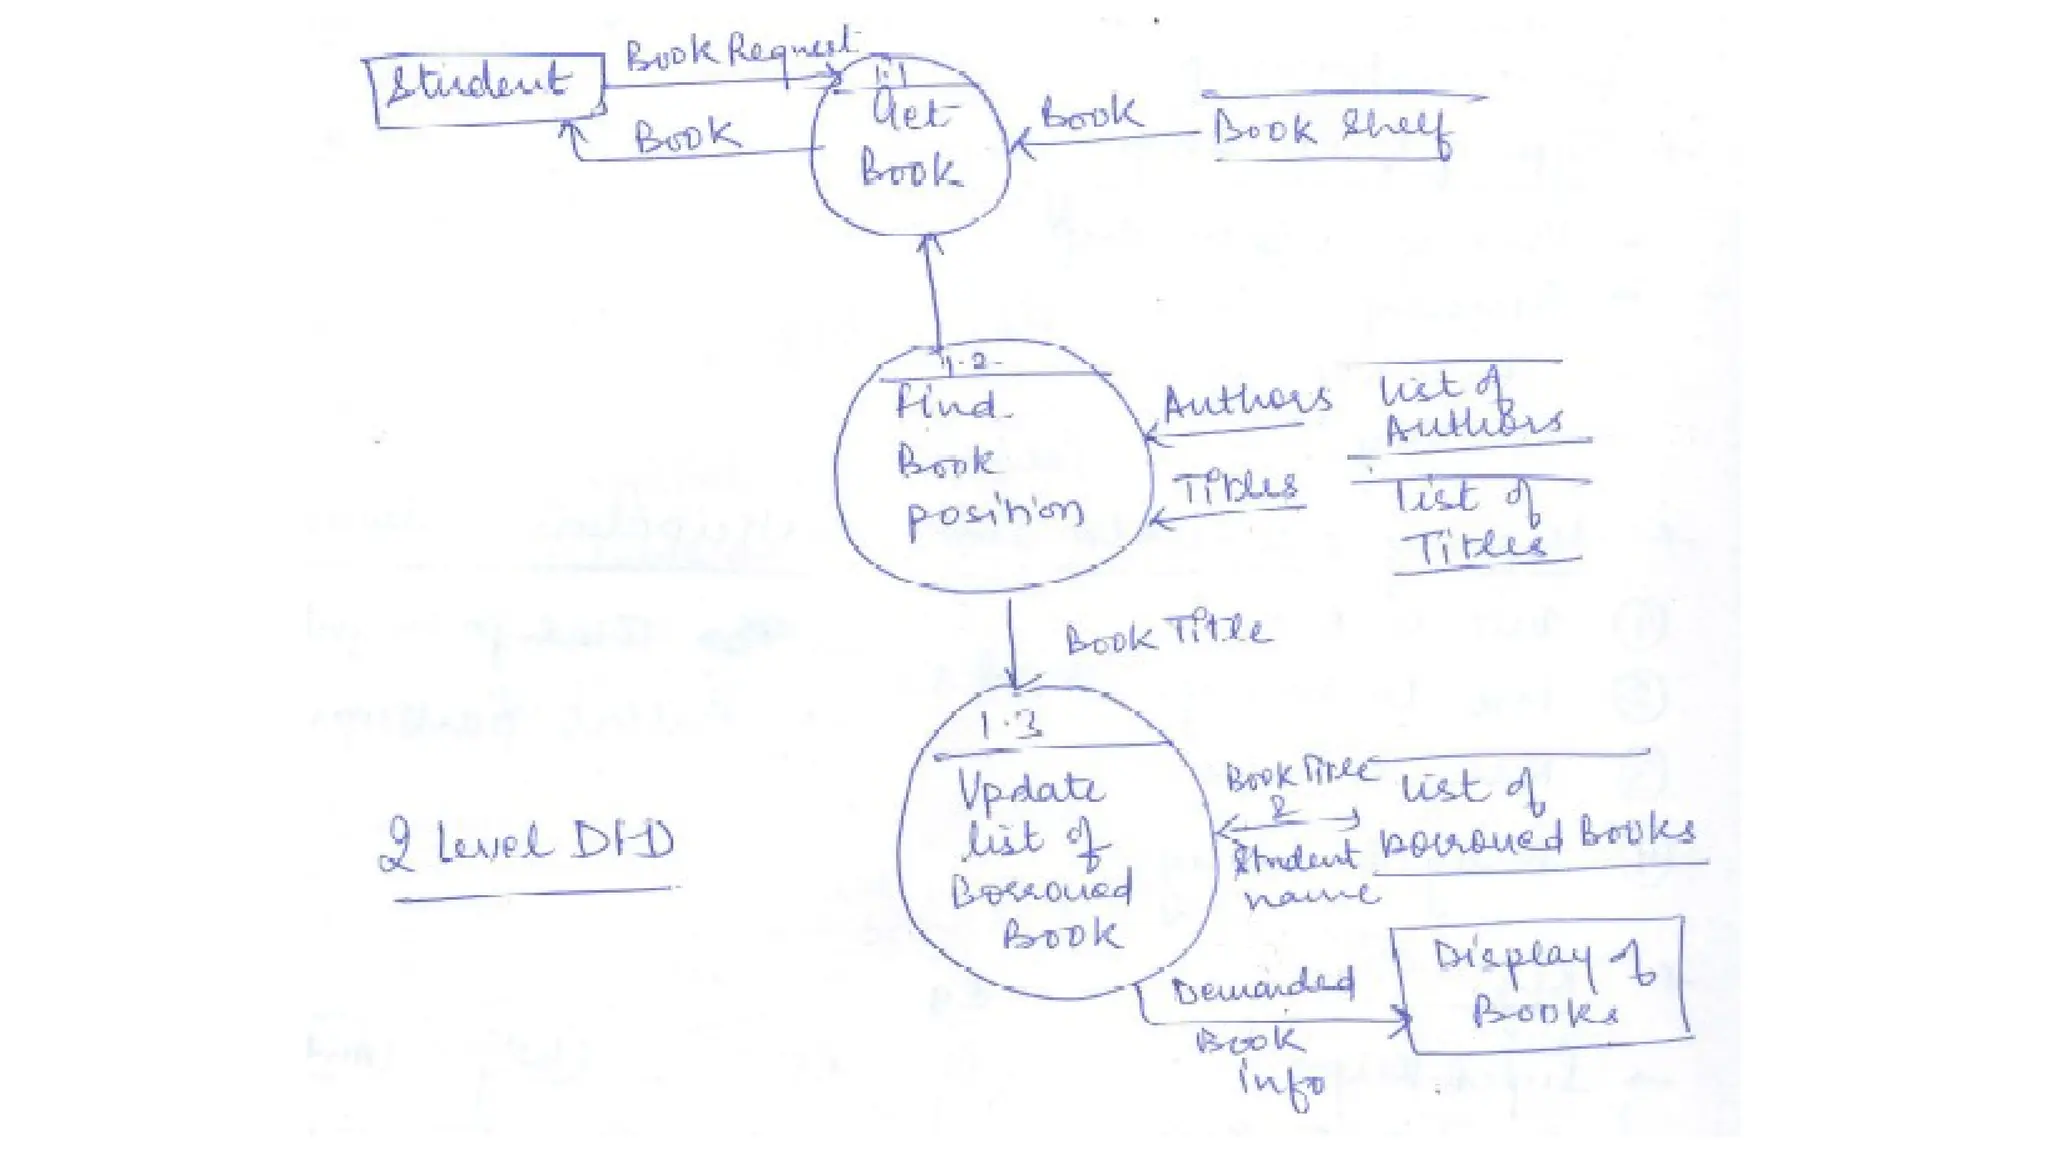 Student
Book Request
Book
1.1
Get
Book
Book
Book Shelf
1.2
Find
Book
position
Authors
List of
Authors
Titles
List of
Titles
Book Title
1.3
Update
list of
Borrowed
Book
Book Title
&
Student
name
List of
borrowed Books
2 Level DFD
Demanded
Book
info
Display of
Books